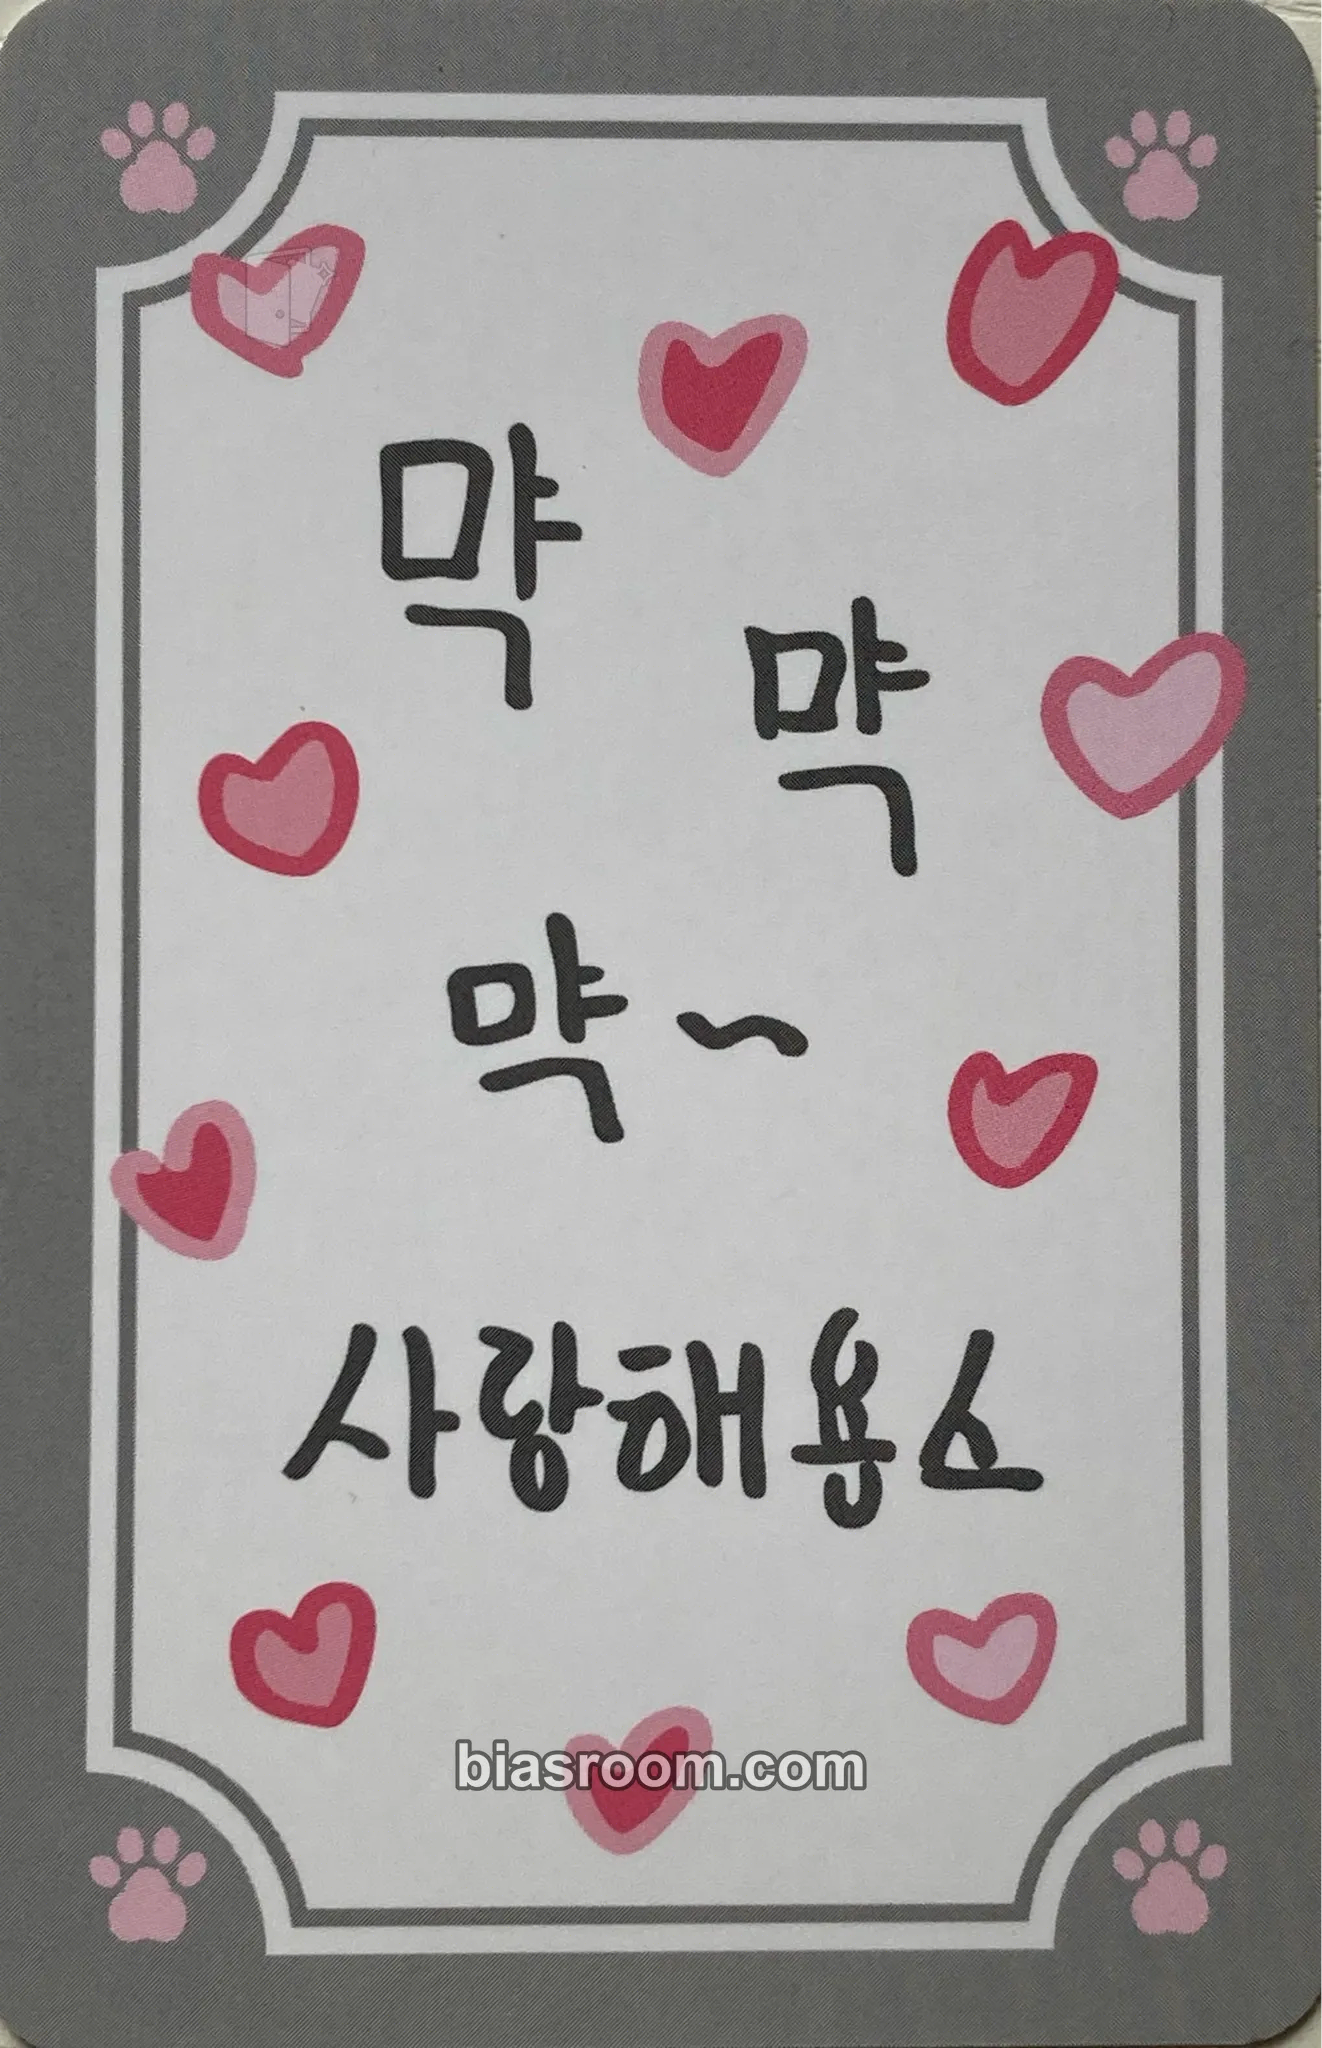 먁
먁
먁~
사랑해용소
biasroom.com